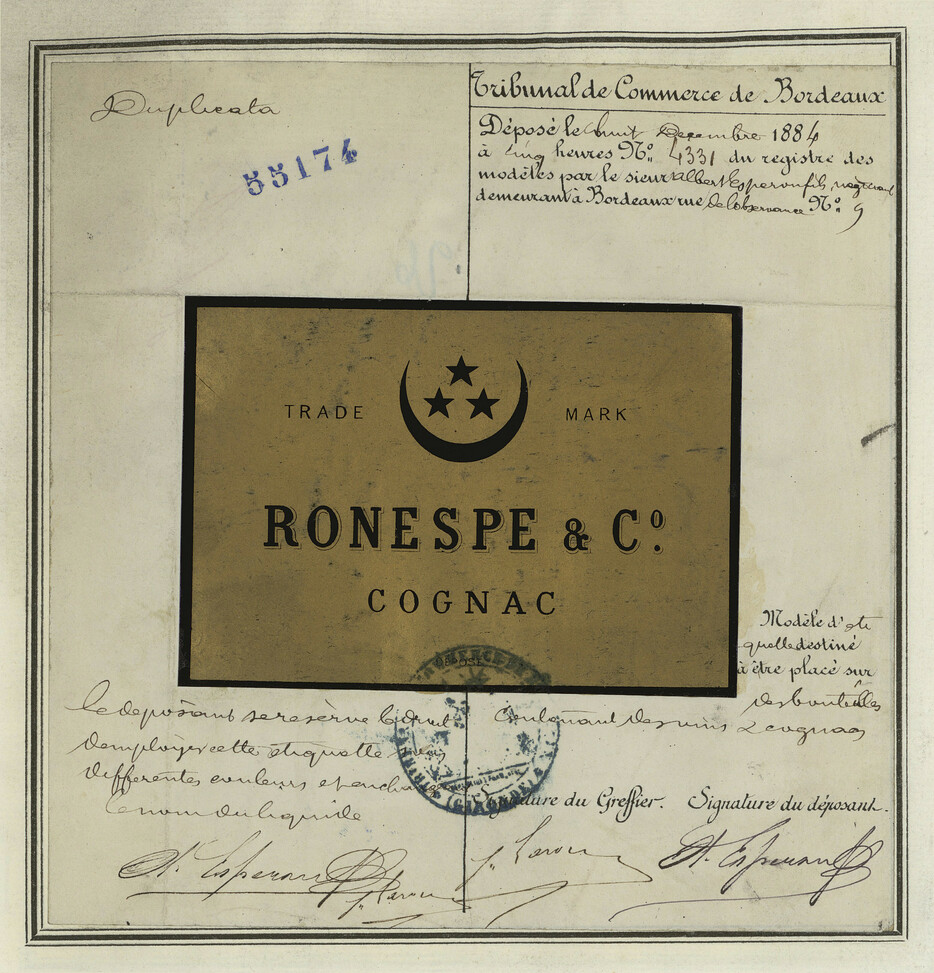 Duplicata
55174
Tribunal de Commerce de Bordeaux
Déposé le huit Décembre 1884
à cinq heures No. 4331 du registre des
modèles par le sieur Albert Esperon fils, négociant
demeurant à Bordeaux rue de l'observance No. 9
TRADE MARK
RONESPE & Co.
COGNAC
Modèle d'éti
quette destiné
à être placé sur
des bouteilles
contenant des vins & cognacs
le deposant se reserve le droit
d'employer cette étiquette
differentes couleurs et
le nom du liquide
Signature du Greffier. Signature du déposant.
A. Esperon
A. Esperon